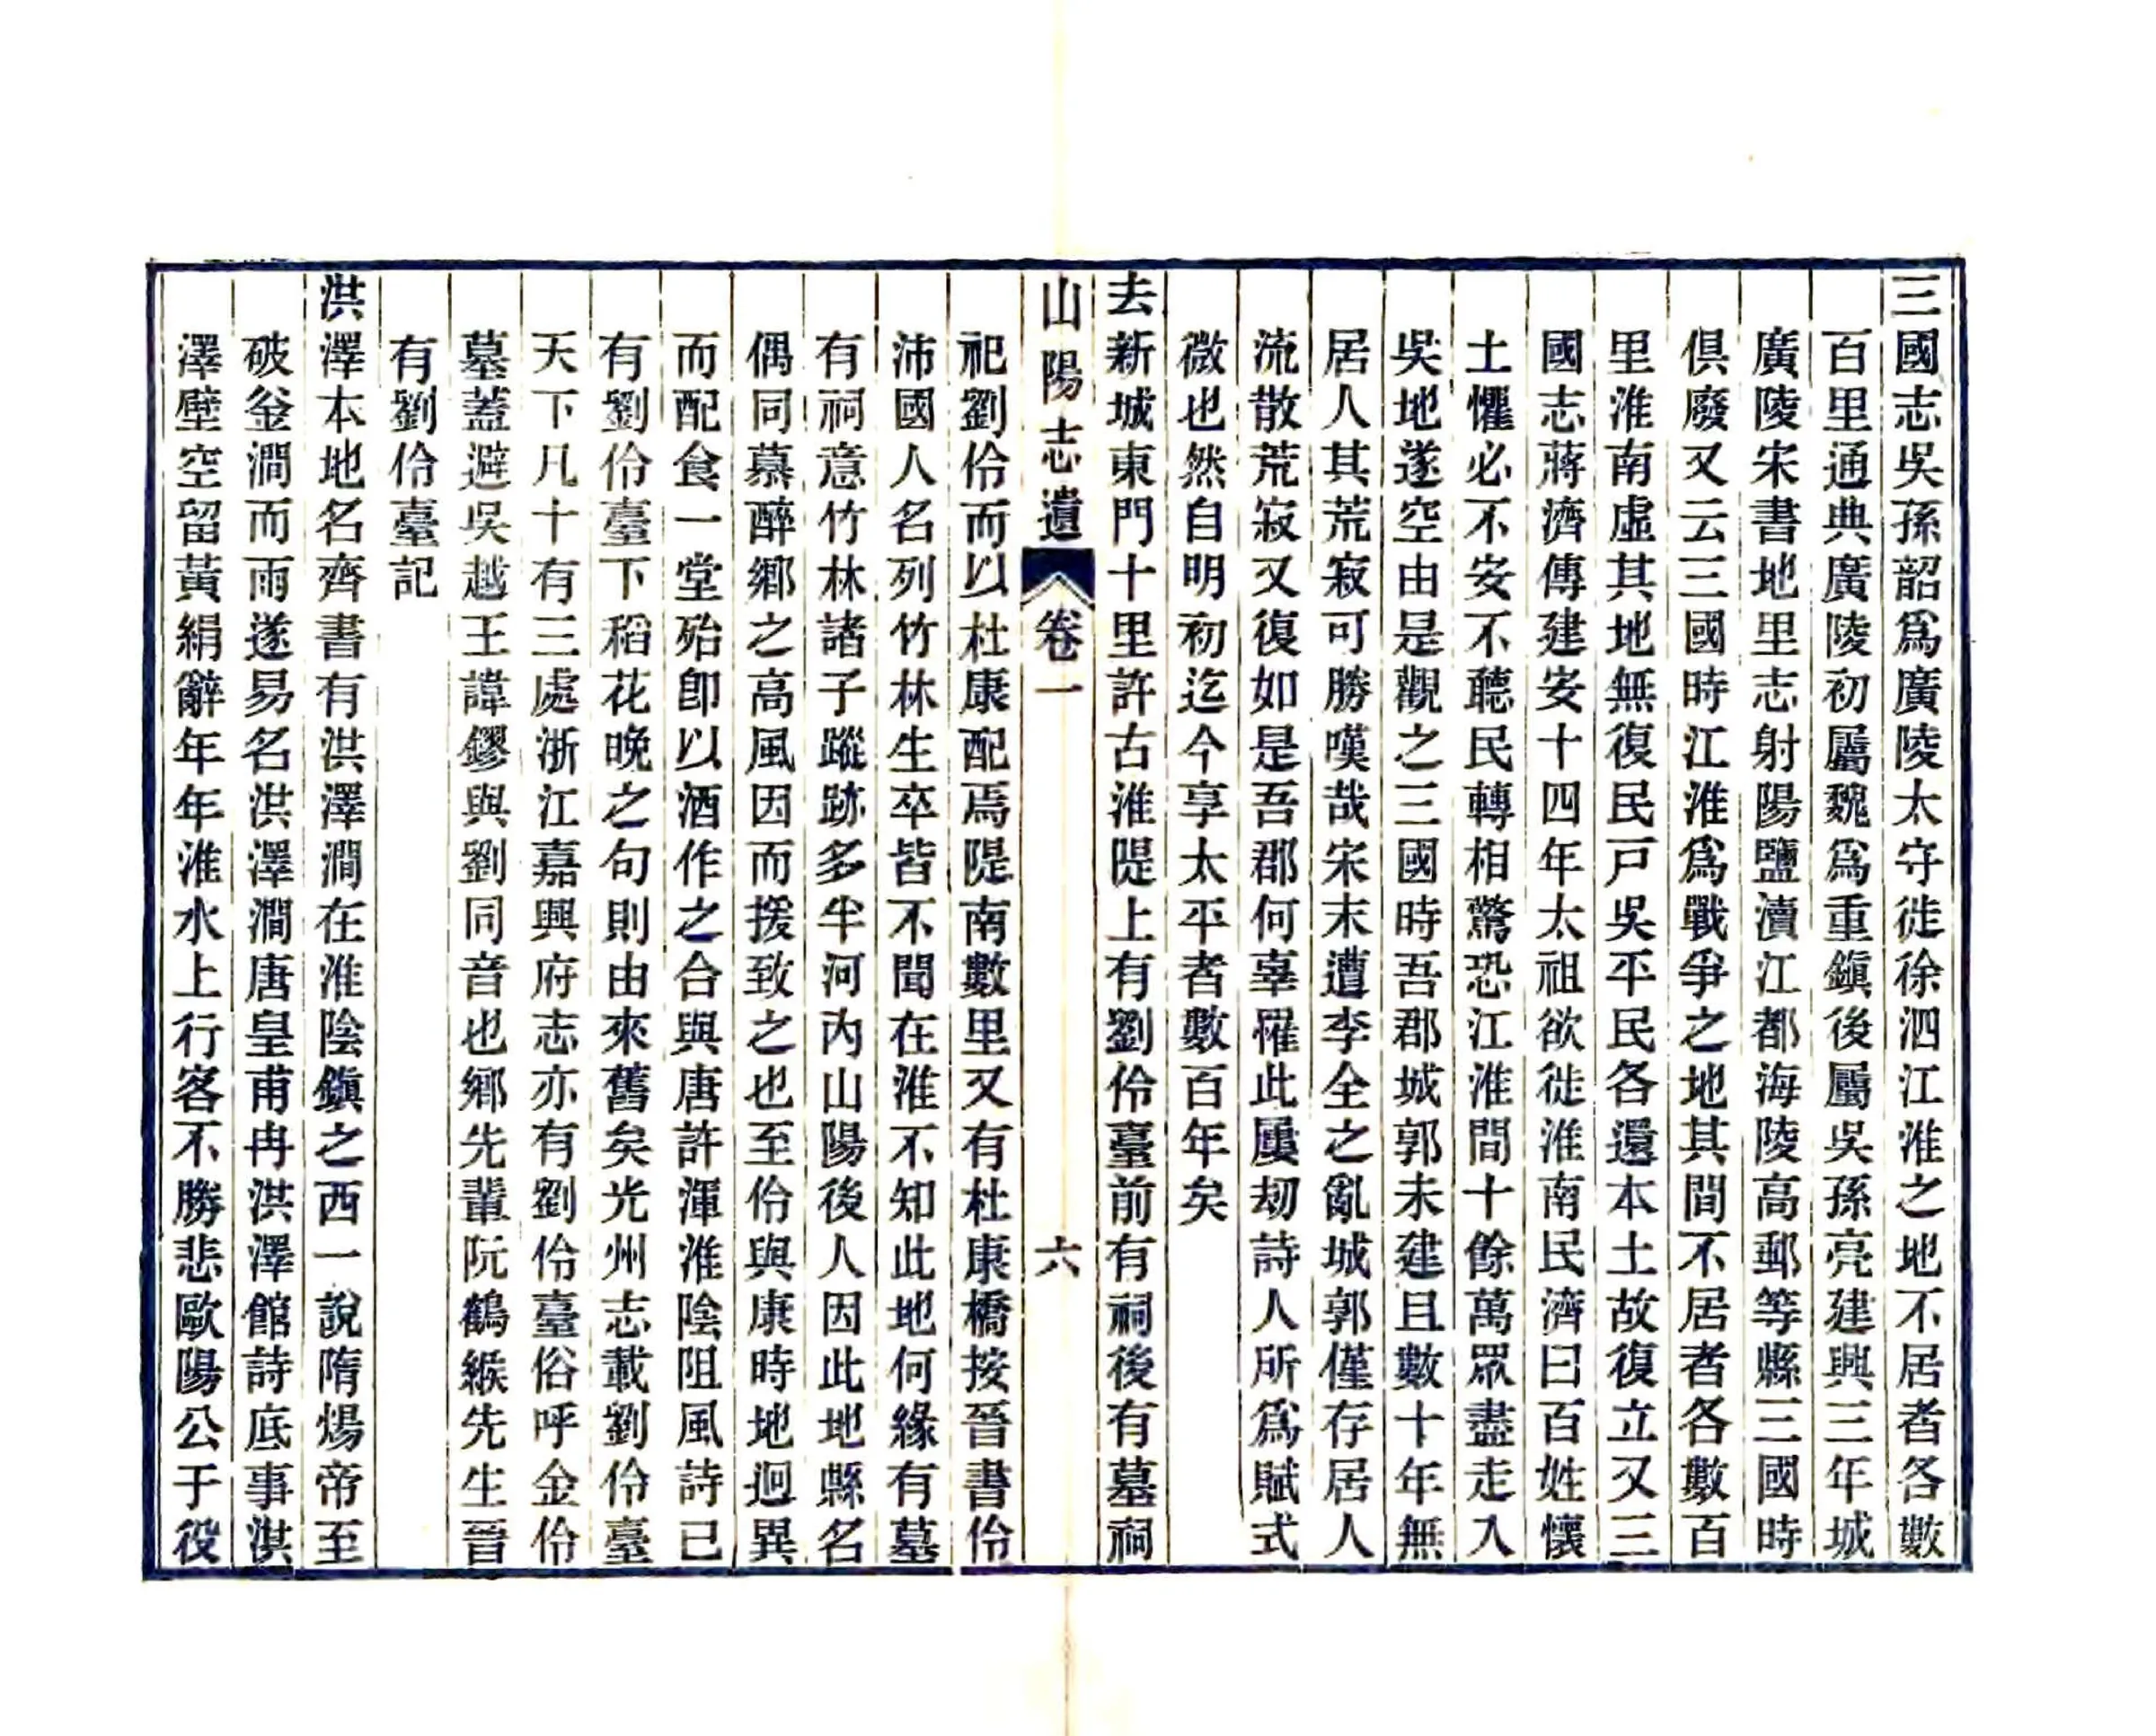 三國志吳孫韶爲廣陵太守徙徐泗江淮之地不居者各數
百里通典廣陵初屬魏爲重鎭後屬吳孫亮建興三年城
廣陵宋書地里志射陽鹽瀆江都海陵高郵等縣三國時
俱廢又云三國時江淮爲戰爭之地其間不居者各數百
里淮南虛其地無復民戸吳平民各還本土故復立又三
國志蔣濟傳建安十四年太祖欲徙淮南民濟曰百姓懷
土懼必不安不聽民轉相驚恐江淮間十餘萬眾盡走入
吳地遂空由是觀之三國時吾郡城郭未建且數十年無
居人其荒寂可勝嘆哉宋末遭李全之亂城郭僅存居人
流散荒寂又復如是吾郡何辜罹此屢刼詩人所爲賦式
微也然自明初迄今享太平者數百年矣
去新城東門十里許古淮隄上有劉伶臺前有祠後有墓祠
山陽志遺 卷一 六
祀劉伶而以杜康配焉隄南數里又有杜康橋按晉書伶
沛國人名列竹林生卒皆不聞在淮不知此地何緣有墓
有祠意竹林諸子蹤跡多半河內山陽後人因此地縣名
偶同慕醉鄉之高風因而援致之也至伶與康時地迥異
而配食一堂殆卽以酒作之合與唐許渾淮陰阻風詩已
有劉伶臺下稻花晚之句則由來舊矣光州志載劉伶臺
天下凡十有三處浙江嘉興府志亦有劉伶臺俗呼金伶
墓蓋避吳越王諱鏐與劉同音也鄉先輩阮鶴緱先生晉
有劉伶臺記
洪澤本地名齊書有洪澤澗在淮陰鎭之西一說隋煬帝至
破釜澗而雨遂易名洪澤澗唐皇甫冉洪澤館詩底事淇
澤壁空留黃絹辭年年淮水上行客不勝悲歐陽公于役